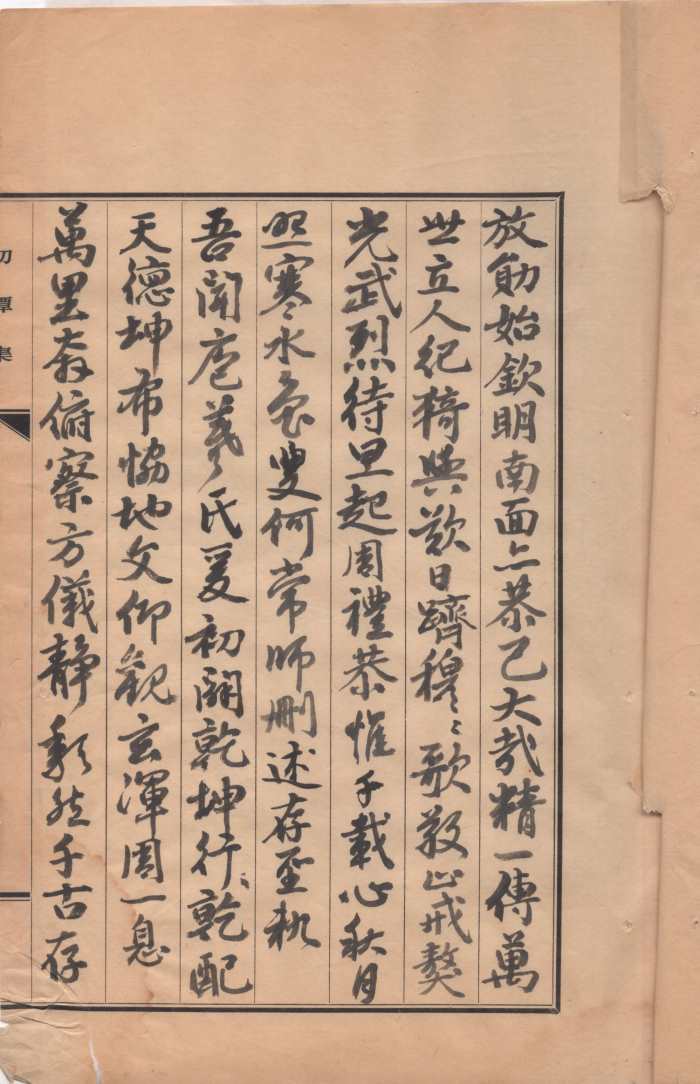 放勛始欽明南面亦恭己大哉精一傳萬
世立人紀猗與歎日躋穆〻歌敬止戒獒
光武烈待旦起周禮恭惟千載心秋月
照寒水魯叟何常師刪述存聖軌
吾聞庖羲氏爰初闢乾坤行乾配
天德坤布協地文仰觀玄渾周一息
萬里奔俯察方儀靜頹然千古存
初潭集